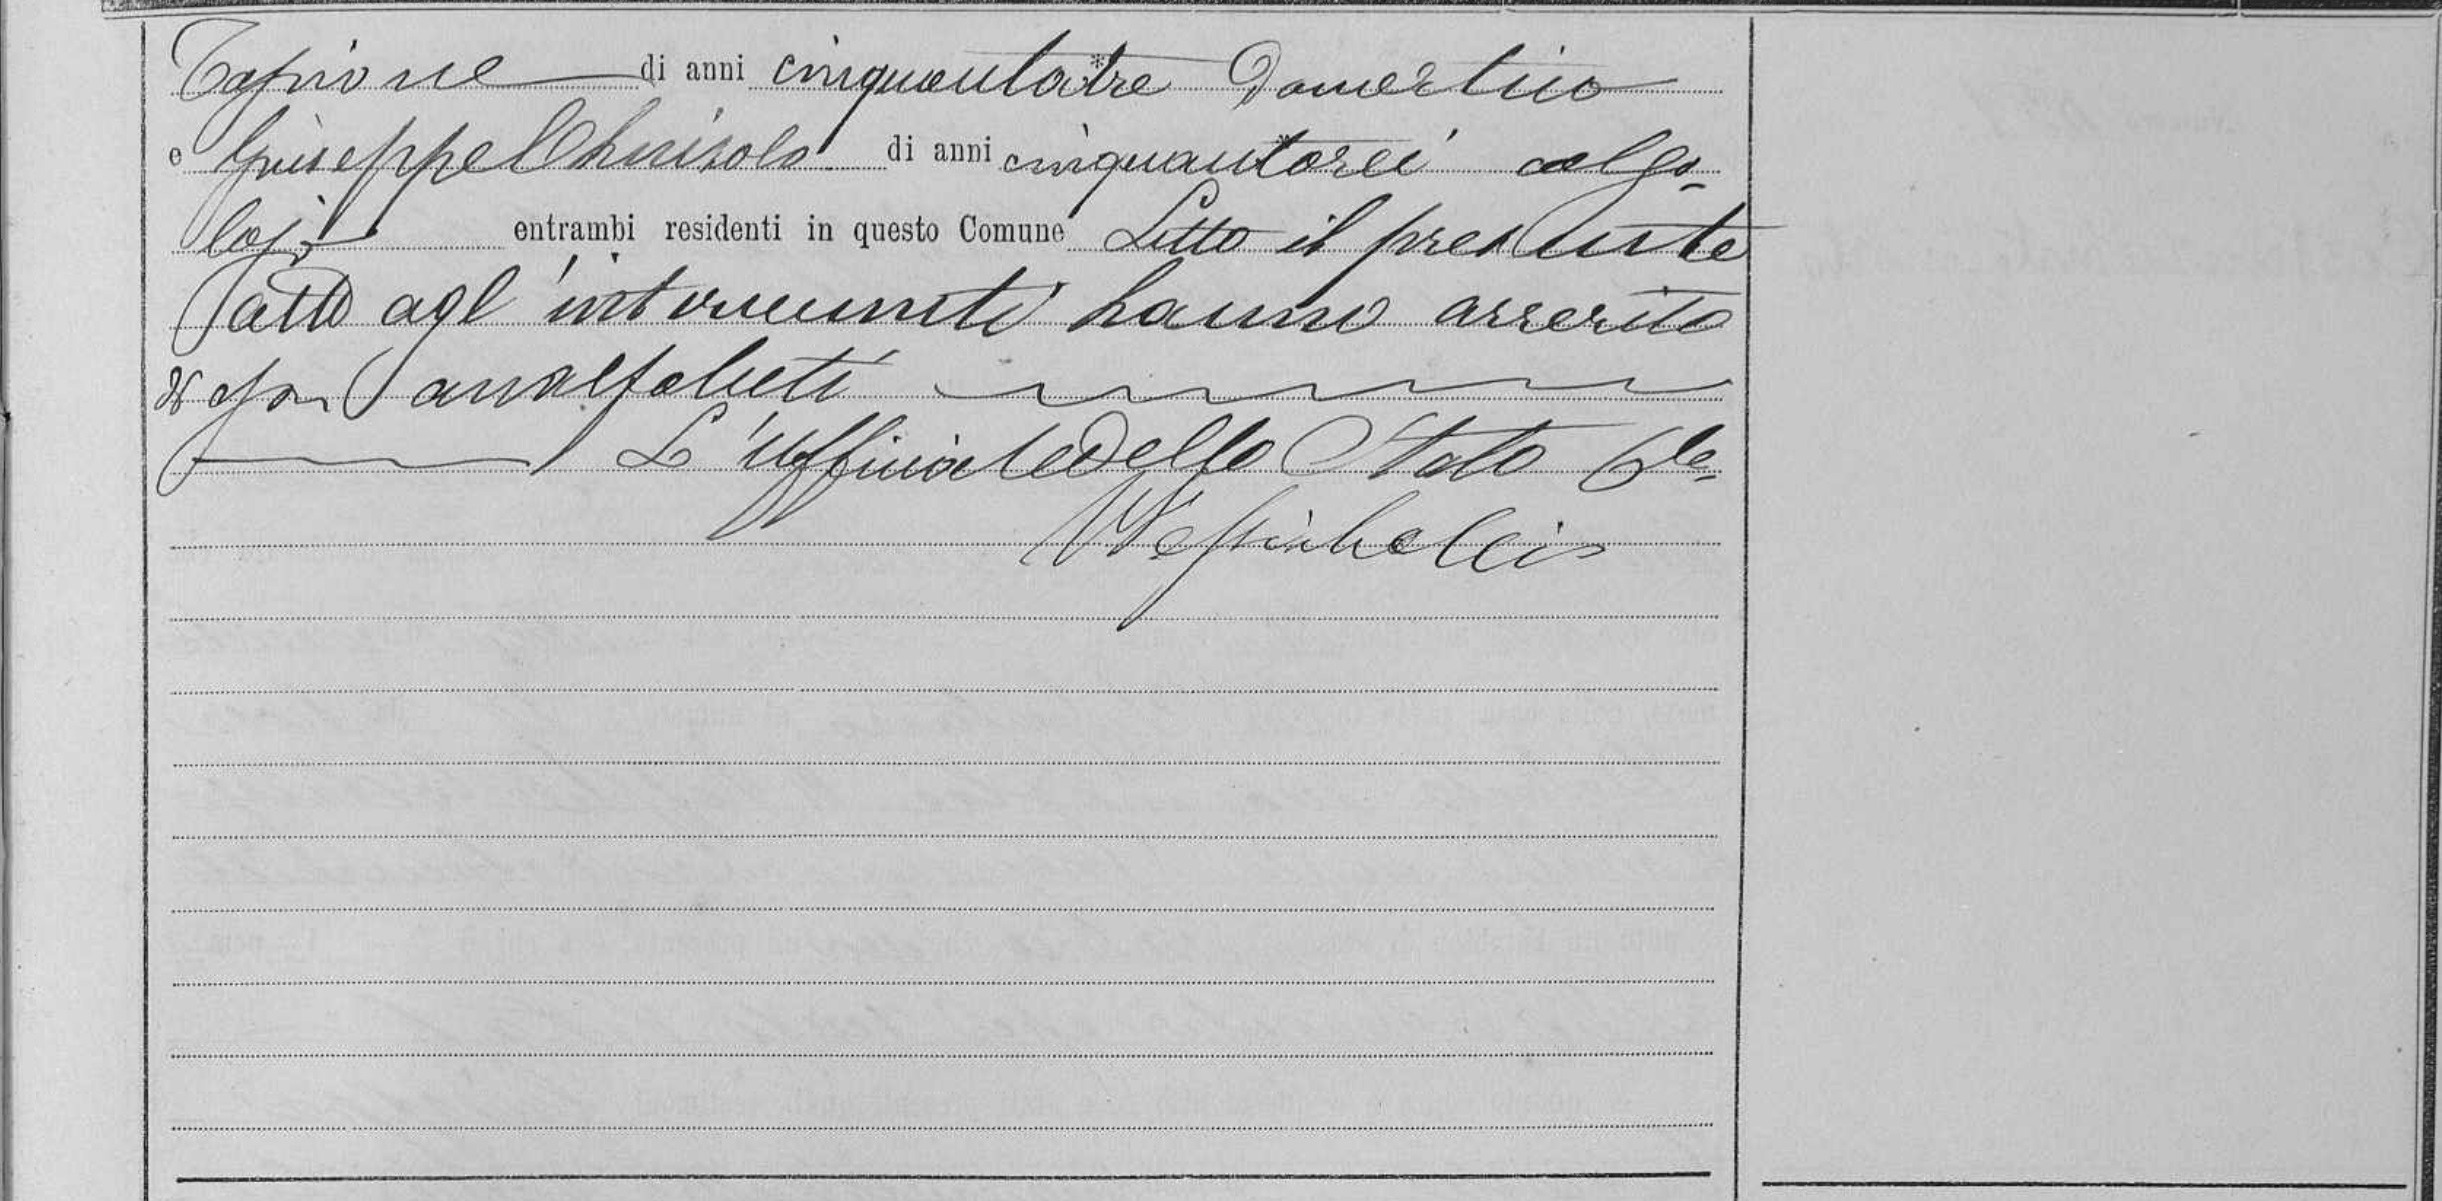 Tapione di anni cinquantatre Domestico
e Giuseppe Chirisola di anni cinquantasei calzo-
lajo entrambi residenti in questo Comune Letto il presente
atto agl'intervenuti hanno asserito
di analfabeti
L'ufficiale dello Stato Cle